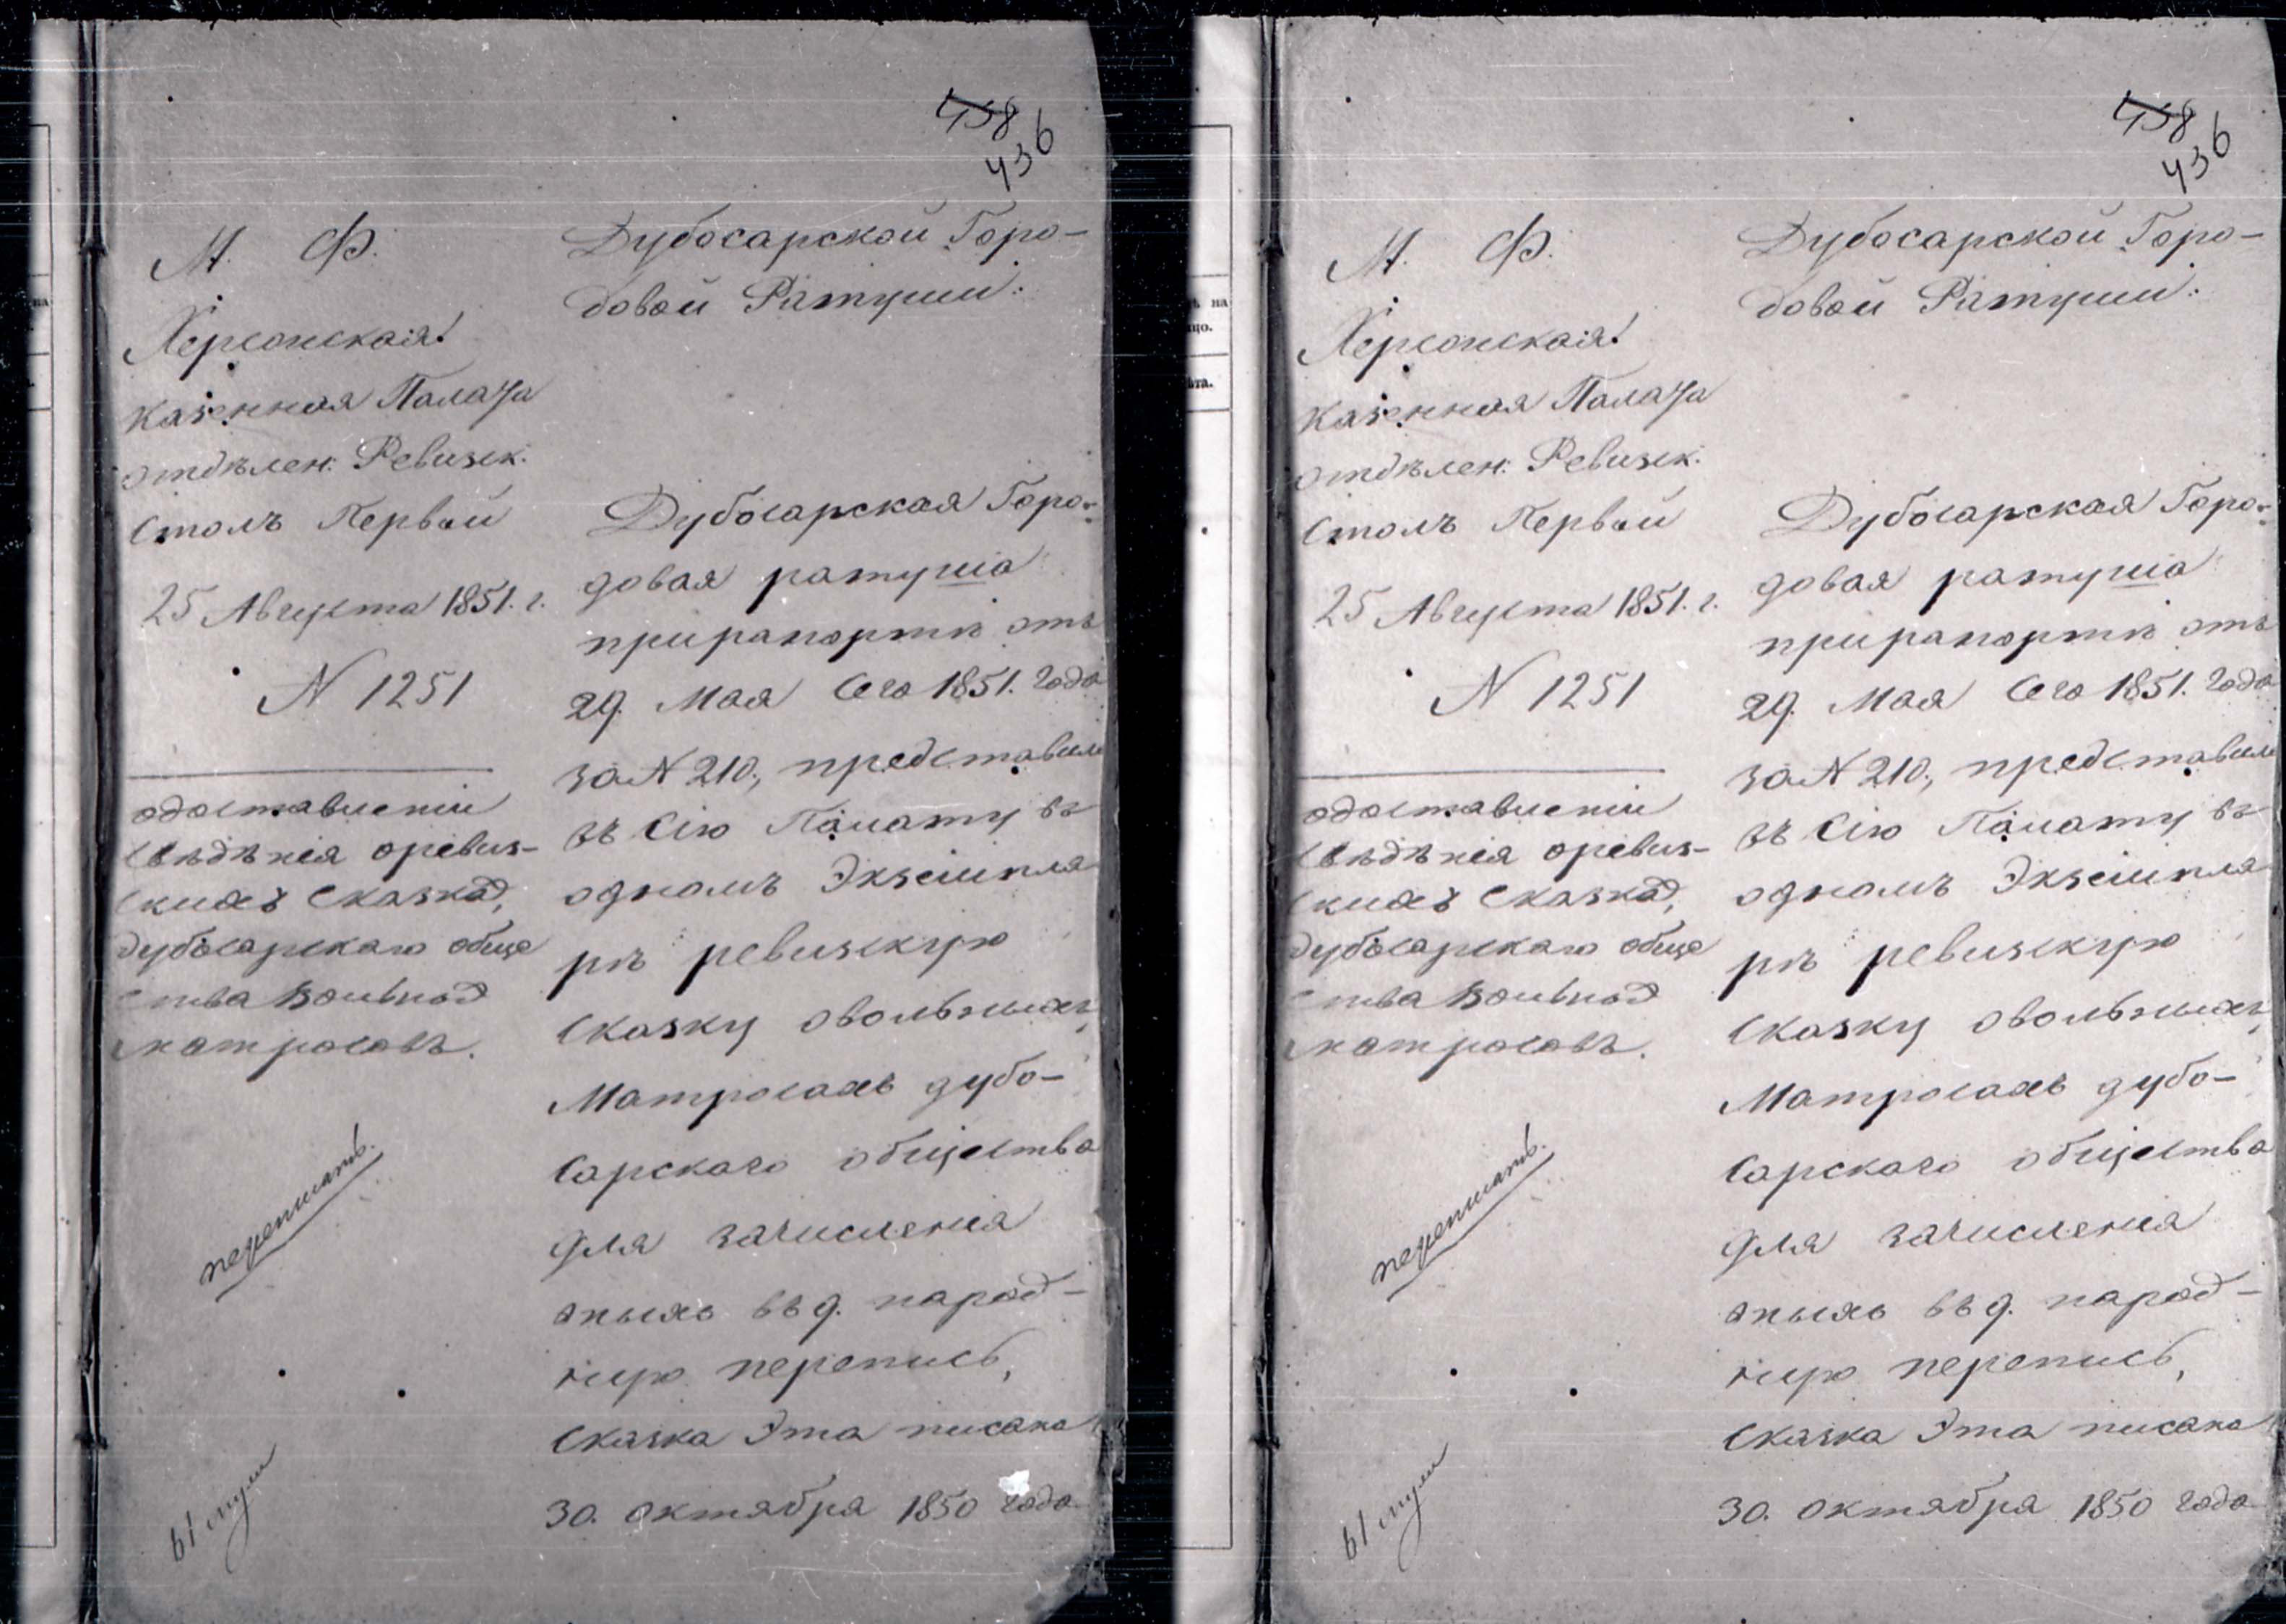 458
436
М. Ф.
Херсонская
Казенная Палата
отдѣлен: Ревизск.
Столъ Первый
25 Августа 1851. г.
N 1251
одоставленіи
свѣдѣнія оревиз-
скихъ сказкахъ,
дубосарскаго обще
ства вольныхъ
матросовъ.
переписать.
61 муж
Дубосарской Горо-
довой Ратуши.
Дубосарская Горо-
довая ратуша
прирапортѣ отъ
29. Мая Сего 1851. года
за N 210., представила
въ Сію Палату въ
одномъ Экземпля
рѣ ревизскую
Сказку овольныхъ
Матросахъ дубо-
Сарскаго общества
для зачисленія
оныхъ въ 9. народ-
ную перепись,
Сказка Эта писана
30. Октября 1850 года
458
436
М. Ф.
Херсонская
Казенная Палата
отдѣлен: Ревизск.
Столъ Первый
25 Августа 1851. г.
N 1251
одоставленіи
свѣдѣнія оревиз-
скихъ сказкахъ,
дубосарскаго обще
ства вольныхъ
матросовъ.
переписать.
61 муж
Дубосарской Горо-
довой Ратуши.
Дубосарская Горо-
довая ратуша
прирапортѣ отъ
29. Мая Сего 1851. года
за N 210., представила
въ Сію Палату въ
одномъ Экземпля
рѣ ревизскую
Сказку овольныхъ
Матросахъ дубо-
Сарскаго общества
для зачисленія
оныхъ въ 9. народ-
ную перепись,
Сказка Эта писана
30. Октября 1850 года